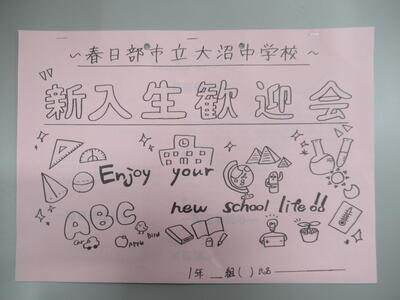 ～春日部市立大沼中学校～
新入生歓迎会
Enjoy your
new school life!!
ABC
car Apple Bird
1年 __組( ) 氏名